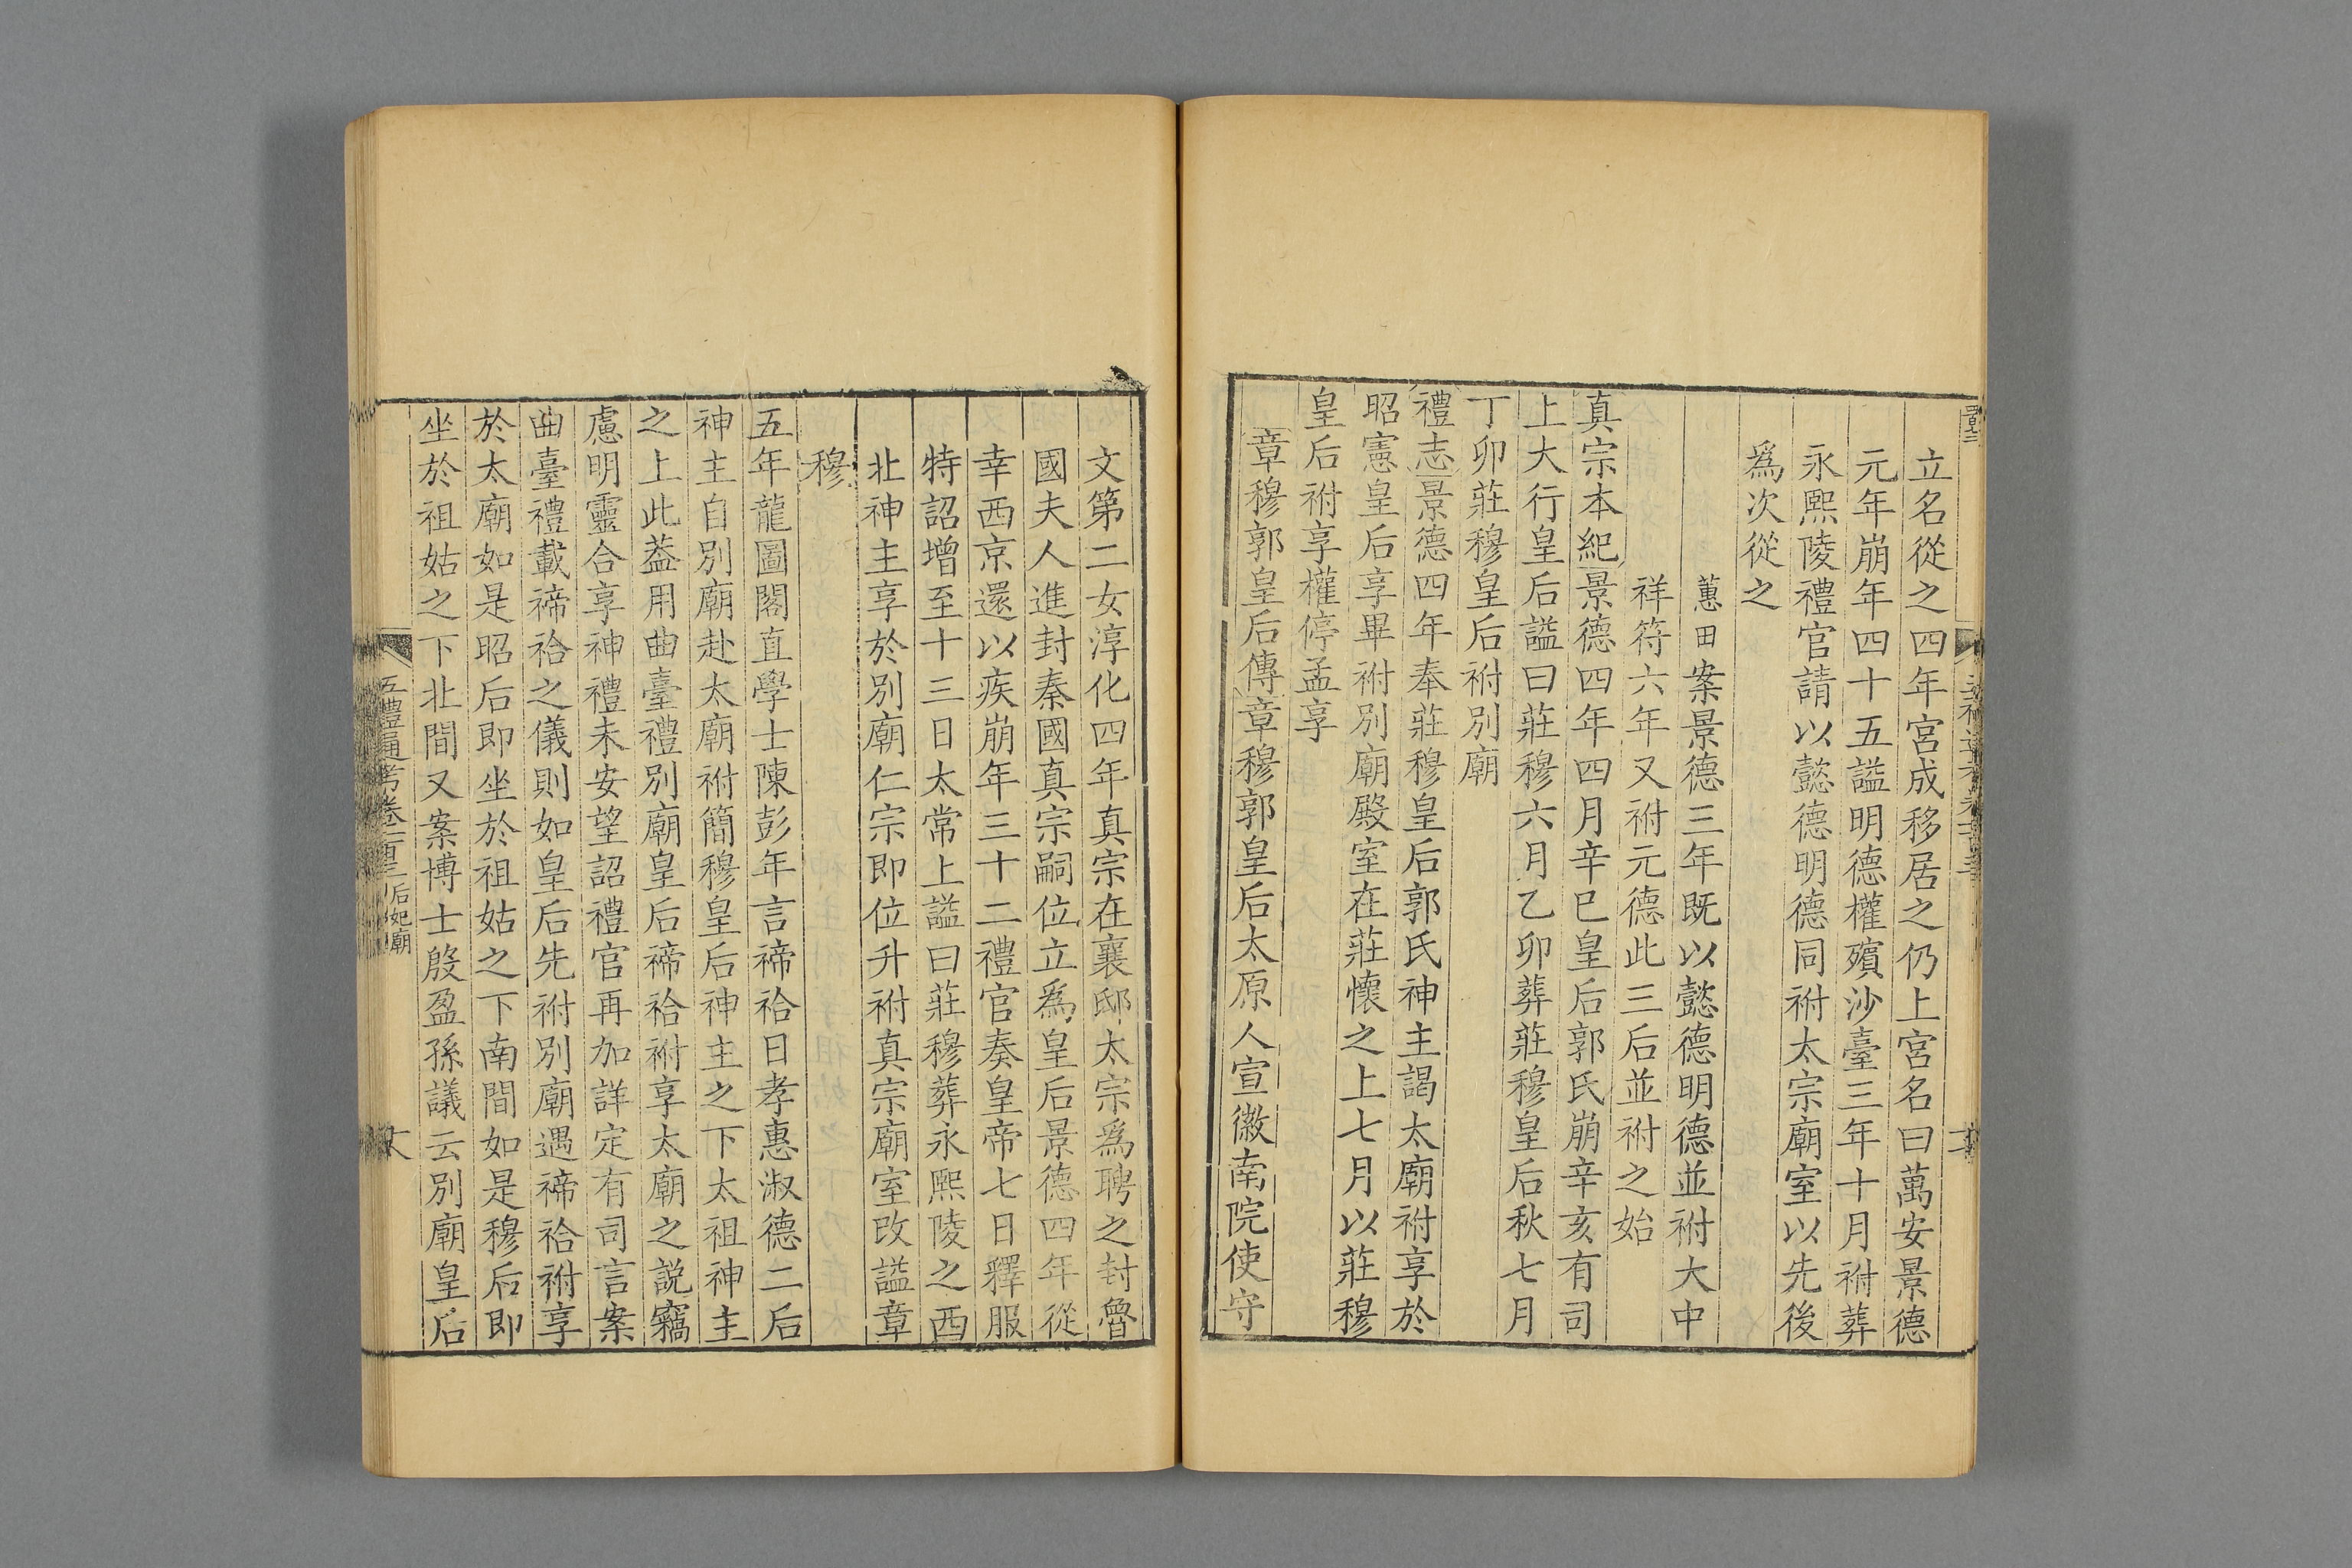 立名從之四年宮成移居之仍上宮名曰萬安景德
元年崩年四十五謚明德權殯沙臺三年十月祔葬
永熙陵禮官請以懿德明德同祔太宗廟室以先後
爲次從之
蕙田案景德三年既以懿德明德並祔大中
祥符六年又祔元德此三后並祔之始
真宗本紀景德四年四月辛巳皇后郭氏崩辛亥有司
上大行皇后謚曰莊穆六月乙卯葬莊穆皇后秋七月
丁卯莊穆皇后祔別廟
禮志景德四年奉莊穆皇后郭氏神主謁太廟祔享於
昭憲皇后享畢祔別廟殿室在莊懷之上七月以莊穆
皇后祔享權停孟享
章穆郭皇后傳章穆郭皇后太原人宣徽南院使守
文第二女淳化四年真宗在襄邸太宗爲聘之封魯
國夫人進封秦國真宗嗣位立爲皇后景德四年從
幸西京還以疾崩年三十二禮官奏皇帝七日釋服
特詔增至十三日太常上謚曰莊穆葬永熙陵之西
北神主享於別廟仁宗即位升祔真宗廟室改謚章
穆
五年龍圖閣直學士陳彭年言禘祫日孝惠淑德二后
神主自別廟赴太廟祔簡穆皇后神主之下太祖神主
之上此葢用曲臺禮別廟皇后禘祫祔享太廟之說竊
慮明靈合享神禮未安望詔禮官再加詳定有司言案
曲臺禮載禘祫之儀則如皇后先祔別廟遇禘祫祔享
於太廟如是昭后即坐於祖姑之下南間如是穆后即
坐於祖姑之下北間又案博士殷盈孫議云別廟皇后
五禮通考卷一百三 后妃廟